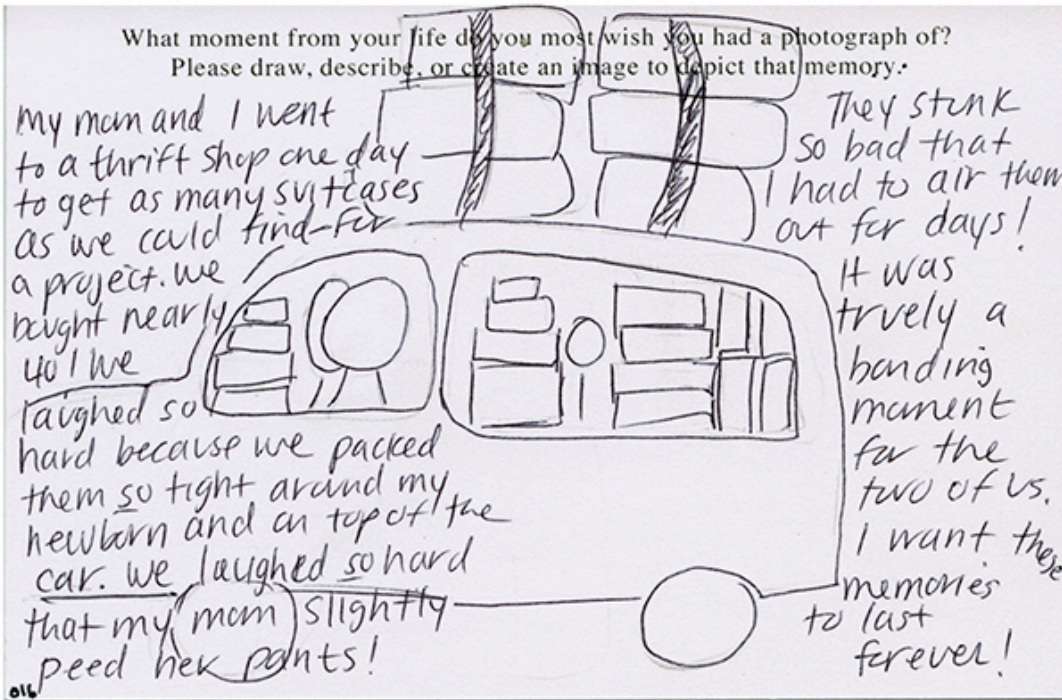 What moment from your life do you most wish you had a photograph of?
Please draw, describe, or create an image to depict that memory.
my mom and I went
to a thrift shop one day
to get as many suitcases
as we could find-for
a project. We
bought nearly
40! We
laughed so
hard because we packed
them so tight around my
newborn and on top of the
car. We laughed so hard
that my mom slightly
peed her pants!
They stunk
so bad that
I had to air them
out for days!
It was
truely a
bonding
moment
for the
two of us.
I want these
memories
to last
forever!
016